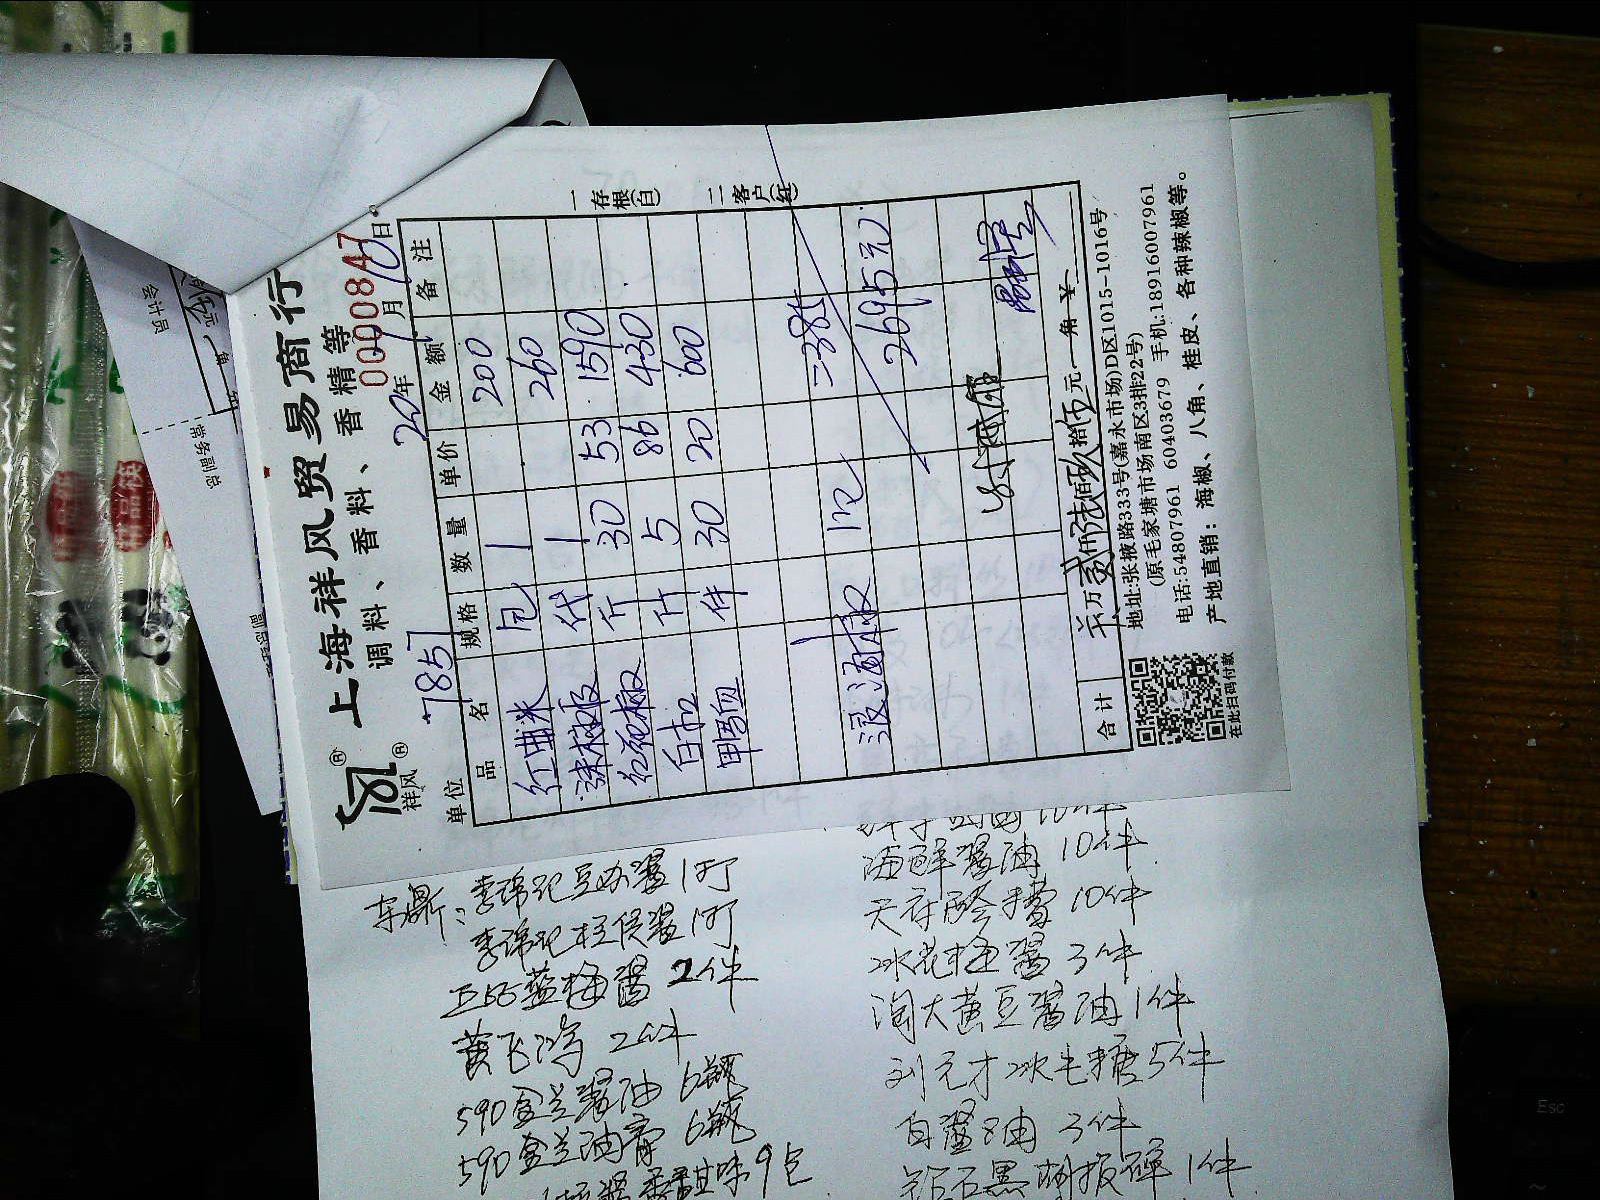 祥风
上海祥风贸易商行
调料、香料、香精等
0000847
单位 7857 20 年 月 日
品名 规格 数量 单价 金额 备注
红曲米 包 1 200
辣椒段 代 1 260
红花椒 斤 30 53 1590
白扣 斤 5 86 430
鸭血 件 30 20 600
一存根(白) 二客户(红)
2695元
合计 万贰仟陆佰玖拾伍元 角 ¥
地址:张掖路333号(嘉永市场)D区1015-1016号
(原毛家塘市场南区3排22号)
电话:54807961 60403679 手机:18916007961
产地直销：海椒、八角、桂皮、各种辣椒等。
在此扫码付款
会计员
常务副总
祥品筷
祥品筷
李锦记豆瓣酱1听
李锦记柱侯酱1听
蓝梅酱 2件
黄飞鸿 2件
590金兰酱油 6瓶
590金兰油膏 6瓶
味9包
海鲜酱油 10件
天府醪糟 10件
冰花梅酱 3件
淘大黄豆酱油1件
刘元才冰毛糖5件
白酱油 3件
钻石黑胡椒碎 1件
Esc